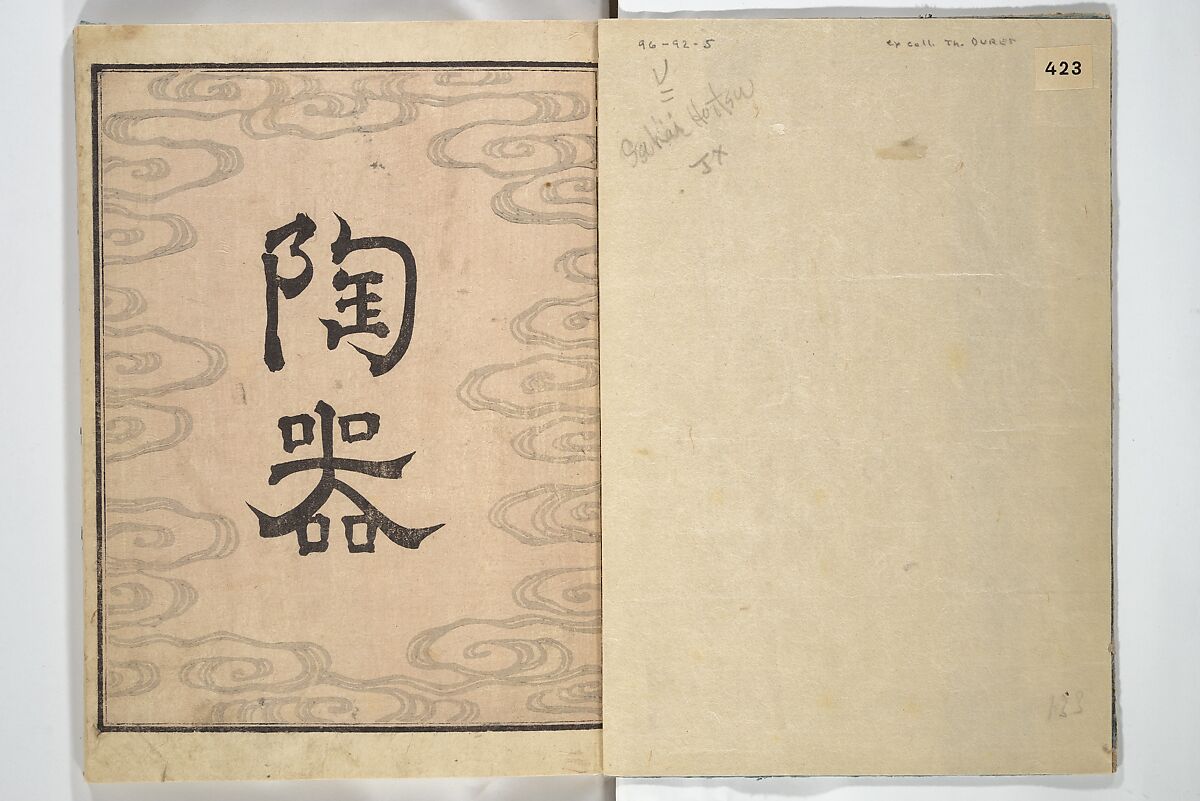 96-92-5
ex coll. Th. DURET
423
V
=
Sakai Hoitsu
JX
133
陶器